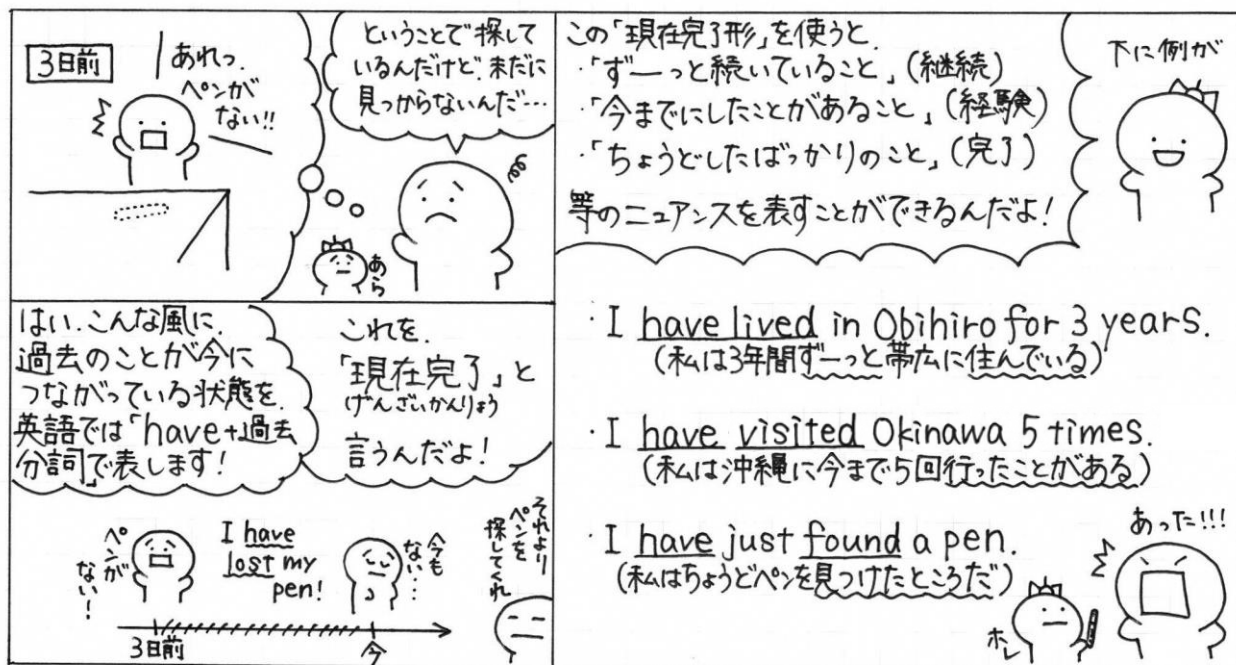 3日前
あれっ、
ペンが
ない!!
ということで探して
いるんだけど、未だに
見つからないんだ…
あら
はい、こんな風に、
過去のことが今に
つながっている状態を、
英語では「have+過去
分詞」で表します!
これを、
「現在完了」と
げんざいかんりょう
言うんだよ!
ペンが
ない!
I have
lost my
pen!
今も
ない…
3日前
今
それより
ペンを
探してくれ
この「現在完了形」を使うと、
・「ずーっと続いていること」(継続)
・「今までにしたことがあること」(経験)
・「ちょうどしたばっかりのこと」(完了)
等のニュアンスを表すことができるんだよ!
下に例が
・I have lived in Obihiro for 3 years.
(私は3年間ずーっと帯広に住んでいる)
・I have visited Okinawa 5 times.
(私は沖縄に今まで5回行ったことがある)
・I have just found a pen.
(私はちょうどペンを見つけたところだ)
あった!!!
ホレ